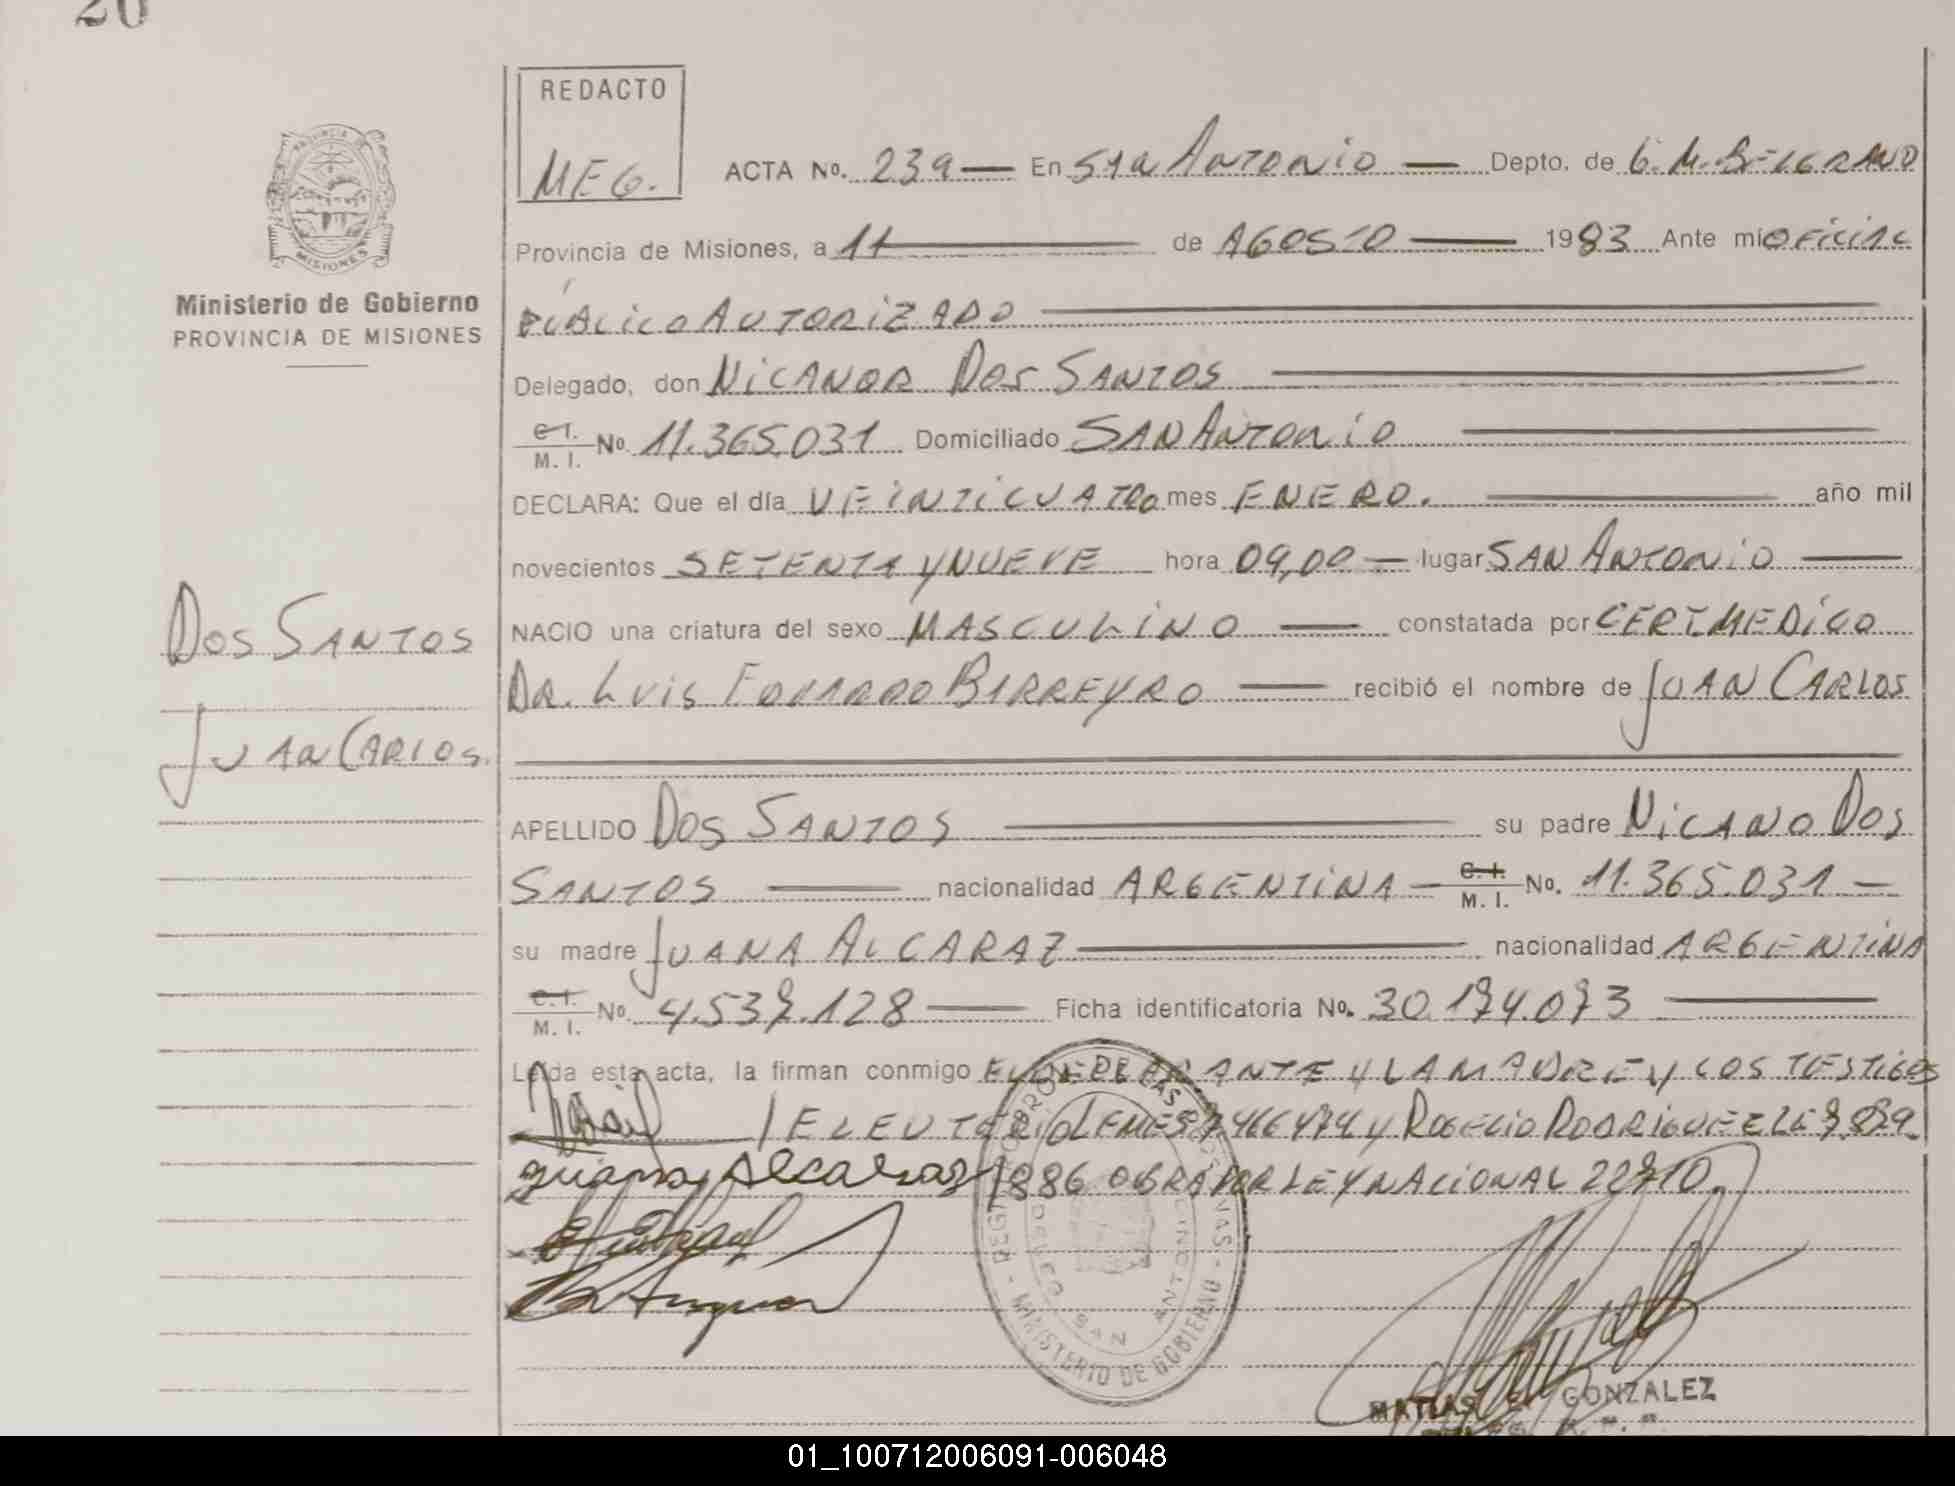 20
REDACTO
MEG.
PROVINCIA DE
MISIONES
Ministerio de Gobierno
PROVINCIA DE MISIONES
ACTA No. 239 — En San Antonio — Depto. de G. M. BELGRANO
Provincia de Misiones, a 11 — de AGOSTO — 1983 Ante mi OFICIAL
PUBLICO AUTORIZADO
Delegado, don NICANOR DOS SANTOS
C.I. M.I. No. 11.365.031 Domiciliado SAN ANTONIO
DECLARA: Que el día VEINTICUATRO mes ENERO. — año mil
novecientos SETENTA Y NUEVE hora 09,00 — lugar SAN ANTONIO —
NACIO una criatura del sexo MASCULINO — constatada por CERT MEDICO
DR. LUIS BARREYRO — recibió el nombre de JUAN CARLOS
DOS SANTOS
JUAN CARLOS.
APELLIDO DOS SANTOS — su padre NICANO DOS
SANTOS — nacionalidad ARGENTINA — C.I. M.I. No. 11.365.031 —
su madre JUANA ALCARAZ — nacionalidad ARGENTINA
C.I. M.I. No. 4.537.128 — Ficha identificatoria No. 30.174.073 —
Leída esta acta, la firman conmigo EL DECLARANTE Y LA MADRE Y LOS TESTIGOS
ELEUTERIO LEMES 7.466474 y ROGELIO RODRIGUEZ LE 7.829.
886 OBRA POR LEY NACIONAL 22710.
Juana Alcaraz
DE LAS PERSONAS - MINISTERIO DE GOBIERNO
SAN ANTONIO
MATIAS GONZALEZ
01_100712006091-006048